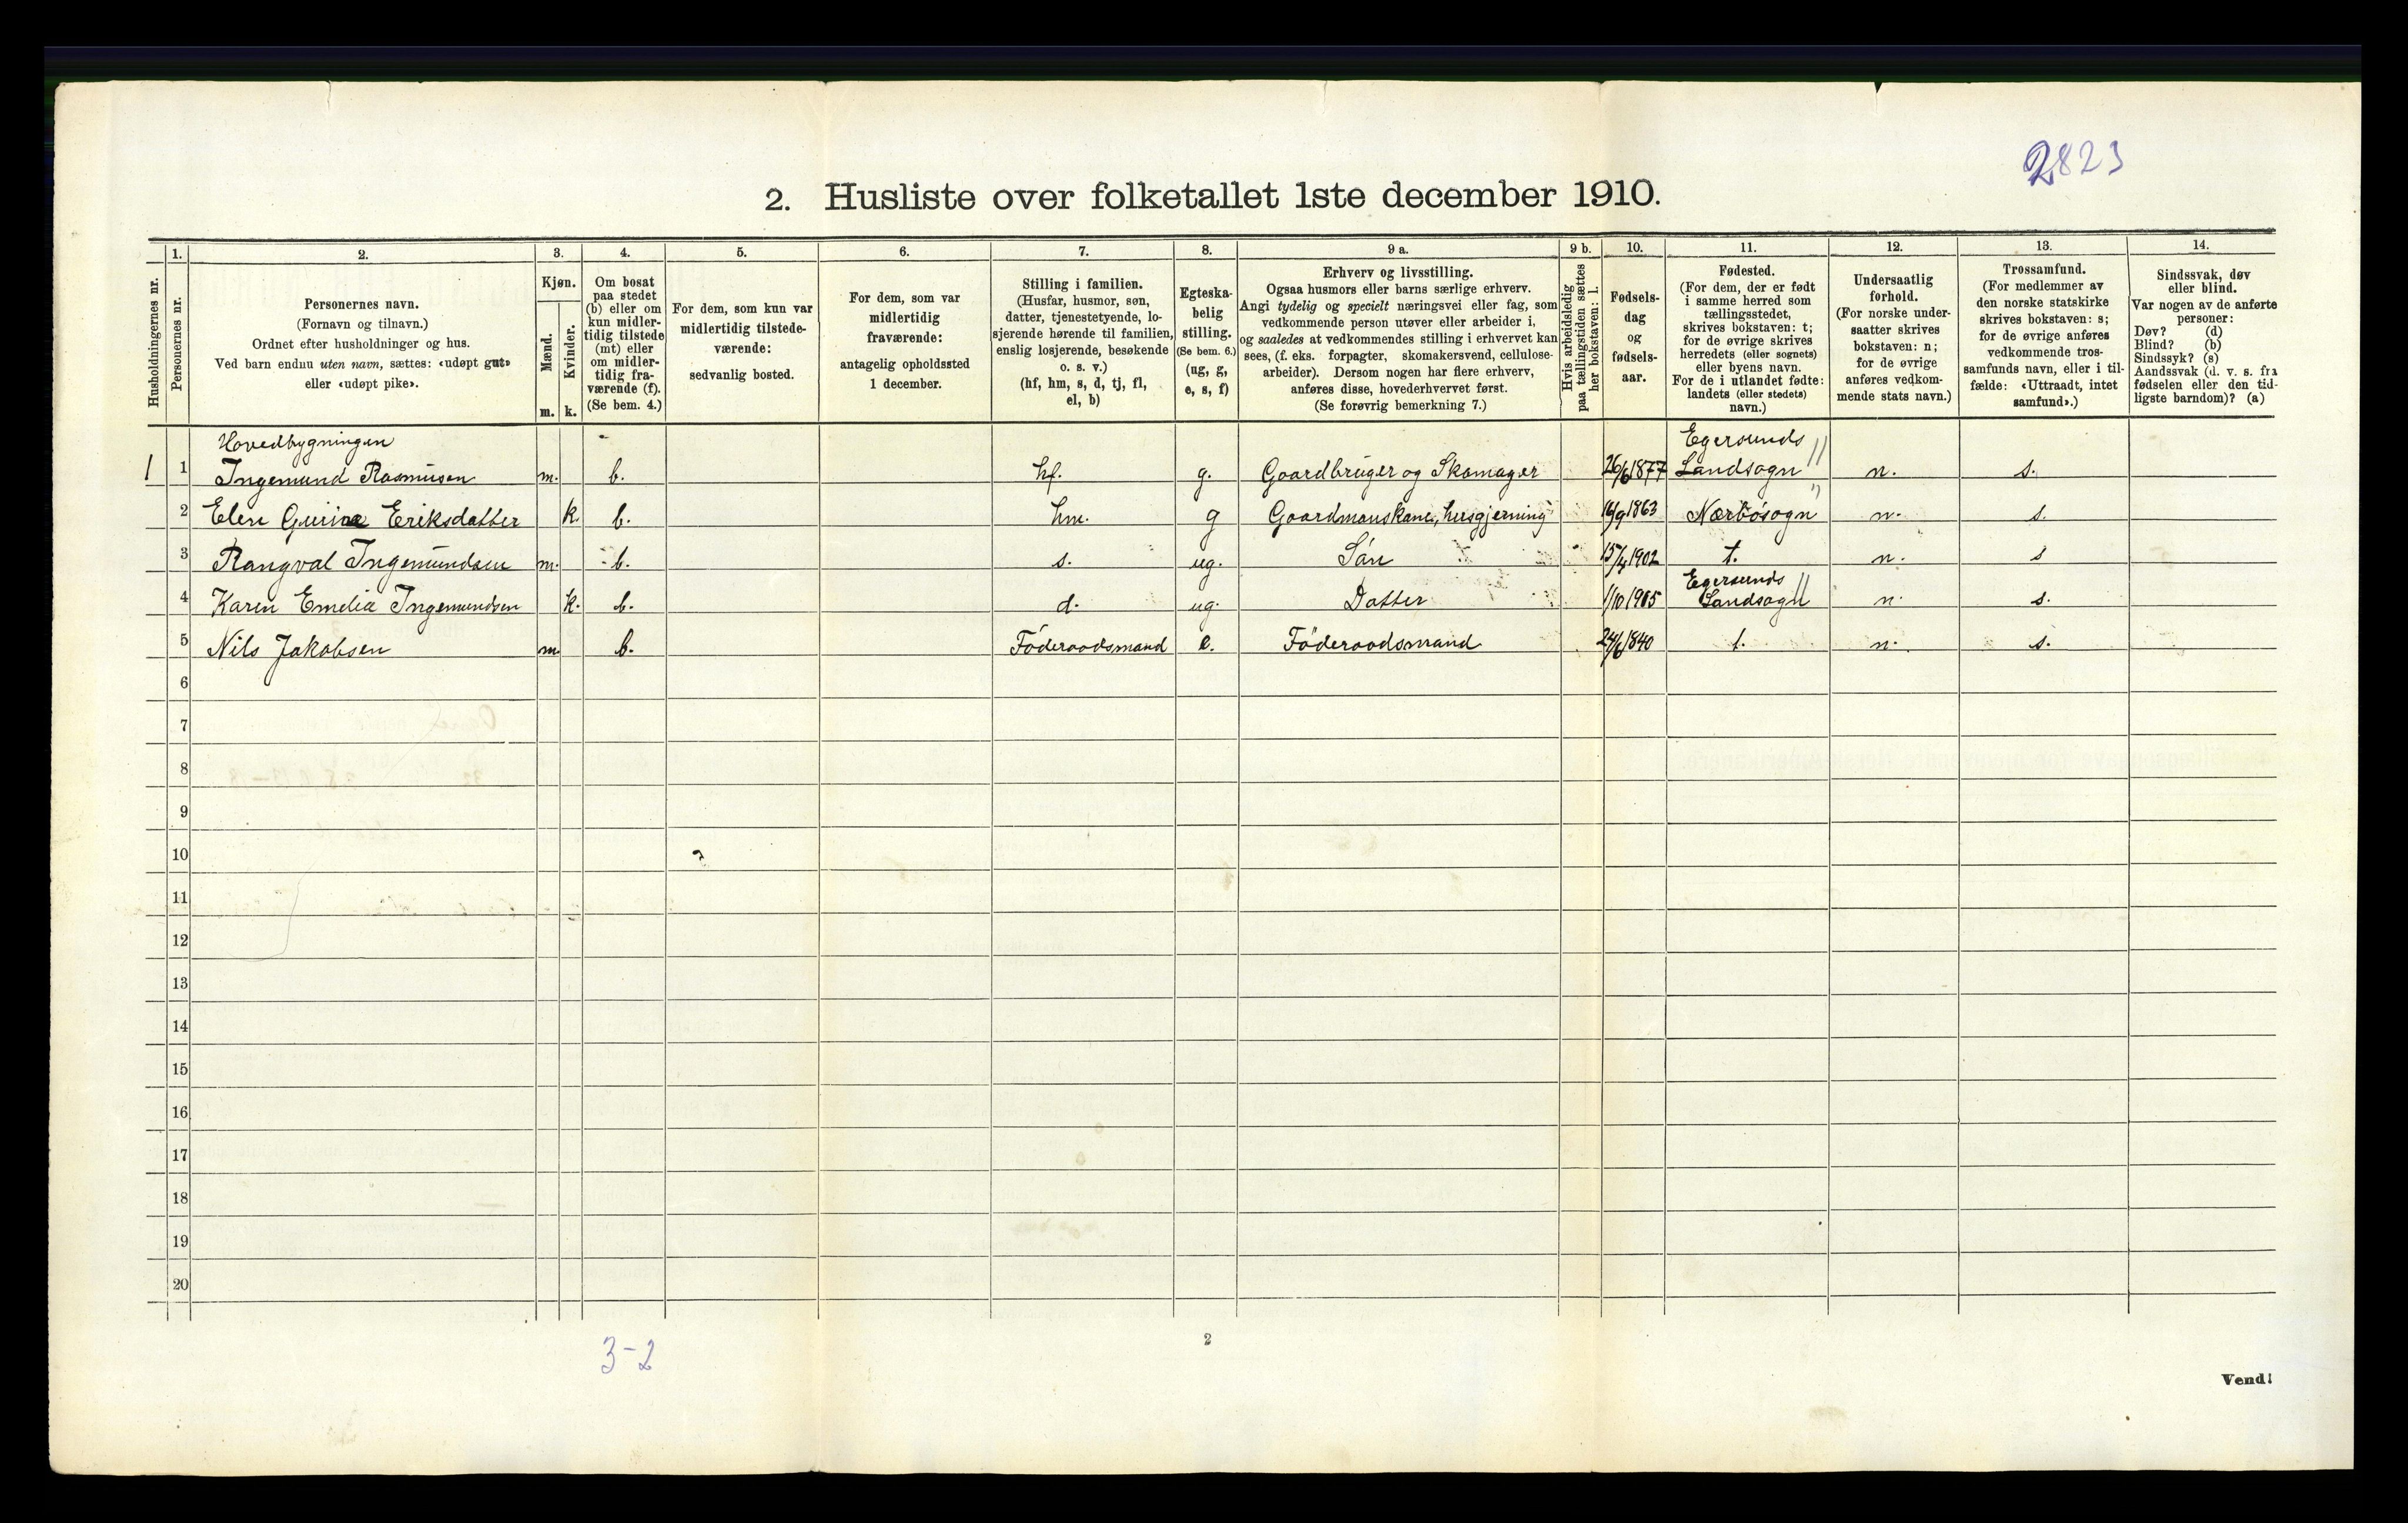 2823
2. Husliste over folketallet 1ste december 1910.
Husholdningernes nr.
1.
Personernes nr.
2.
Personernes navn.
(Fornavn og tilnavn.)
Ordnet efter husholdninger og hus.
Ved barn endnu uten navn, sættes: «udøpt gut»
eller «udøpt pike».
3.
Kjøn.
Mænd.
m.
Kvinder.
k.
4.
Om bosat
paa stedet
(b) eller om
kun midler-
tidig tilstede
(mt) eller
om midler-
tidig fra-
værende (f).
(Se bem. 4.)
5.
For dem, som kun var
midlertidig tilstede-
værende:
sedvanlig bosted.
6.
For dem, som var
midlertidig
fraværende:
antagelig opholdssted
1 december.
7.
Stilling i familien.
(Husfar, husmor, søn,
datter, tjenestetyende, lo-
sjerende hørende til familien,
enslig losjerende, besøkende
o. s. v.)
(hf, hm, s, d, tj, fl,
el, b)
8.
Egteska-
belig
stilling.
(Se bem. 6.)
(ug, g,
e, s, f)
9 a.
Erhverv og livsstilling.
Ogsaa husmors eller barns særlige erhverv.
Angi tydelig og specielt næringsvei eller fag, som
vedkommende person utøver eller arbeider i,
og saaledes at vedkommendes stilling i erhvervet kan
sees, (f. eks. forpagter, skomakersvend, cellulose-
arbeider). Dersom nogen har flere erhverv,
anføres disse, hovederhvervet først.
(Se forøvrig bemerkning 7.)
9 b.
Hvis arbeidsledig
paa tællingstiden sættes
her bokstaven: l.
10.
Fødsels-
dag
og
fødsels-
aar.
11.
Fødested.
(For dem, der er født
i samme herred som
tællingsstedet,
skrives bokstaven: t;
for de øvrige skrives
herredets (eller sognets)
eller byens navn.
For de i utlandet fødte:
landets (eller stedets)
navn.)
12.
Undersaatlig
forhold.
(For norske under-
saatter skrives
bokstaven: n;
for de øvrige
anføres vedkom-
mende stats navn.)
13.
Trossamfund.
(For medlemmer av
den norske statskirke
skrives bokstaven: s;
for de øvrige anføres
vedkommende tros-
samfunds navn, eller i til-
fælde: «Uttraadt, intet
samfund».)
14.
Sindssvak, døv
eller blind.
Var nogen av de anførte
personer:
Døv? (d)
Blind? (b)
Sindssyk? (s)
Aandssvak (d. v. s. fra
fødselen eller den tid-
ligste barndom)? (a)
Hovedbygningen
1 1 Ingemund Rasmusen m. b. hf. g. Gaardbruger og Skomager 26/6 1877 Egersunds Landsogn n. s.
2 Elen Gurine Eriksdatter k. b. hm. g Gaardmanskone, husgjerning 16/9 1863 Nærbösogn n. s.
3 Rangval Ingemundsen m. b. s. ug. Sön 15/4 1902 t. n. s
4 Karen Emelia Ingemundsen k. b. d. ug. Datter 1/10 1905 Egersunds Landsogn n. s.
5 Nils Jakobsen m. b. Föderaadsmand e. Föderaadsmand 24/6 1840 t. n. s.
6
7
8
9
10
11
12
13
14
15
16
17
18
19
20
3-2
2
Vend!